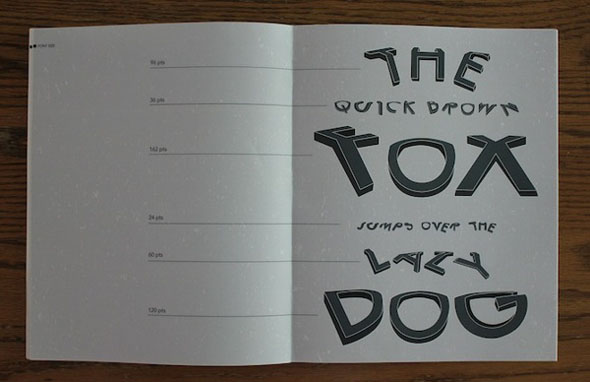 POINT SIZE
96 pts
36 pts
162 pts
24 pts
60 pts
120 pts
THE
QUICK BROWN
FOX
JUMPS OVER THE
LAZY
DOG